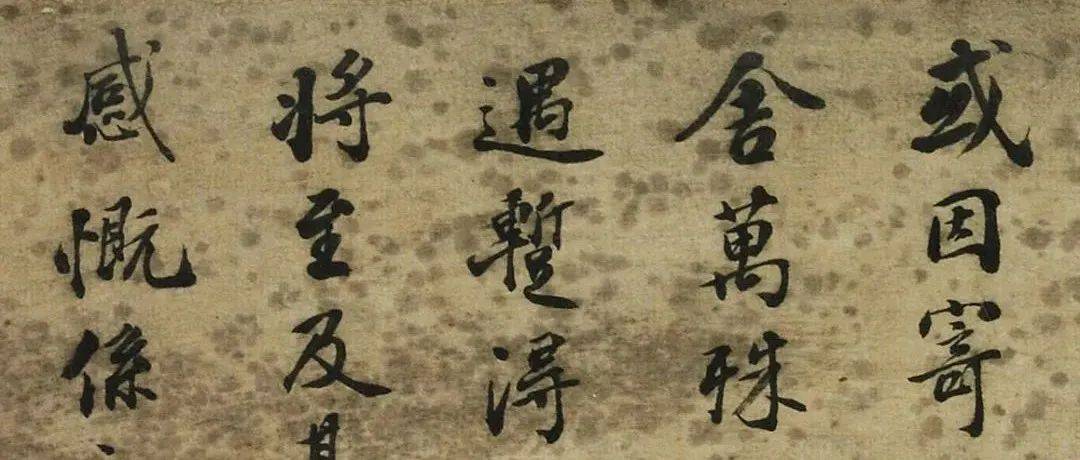 或因寄
舍萬殊
遇蹔得
將至及其
感慨係